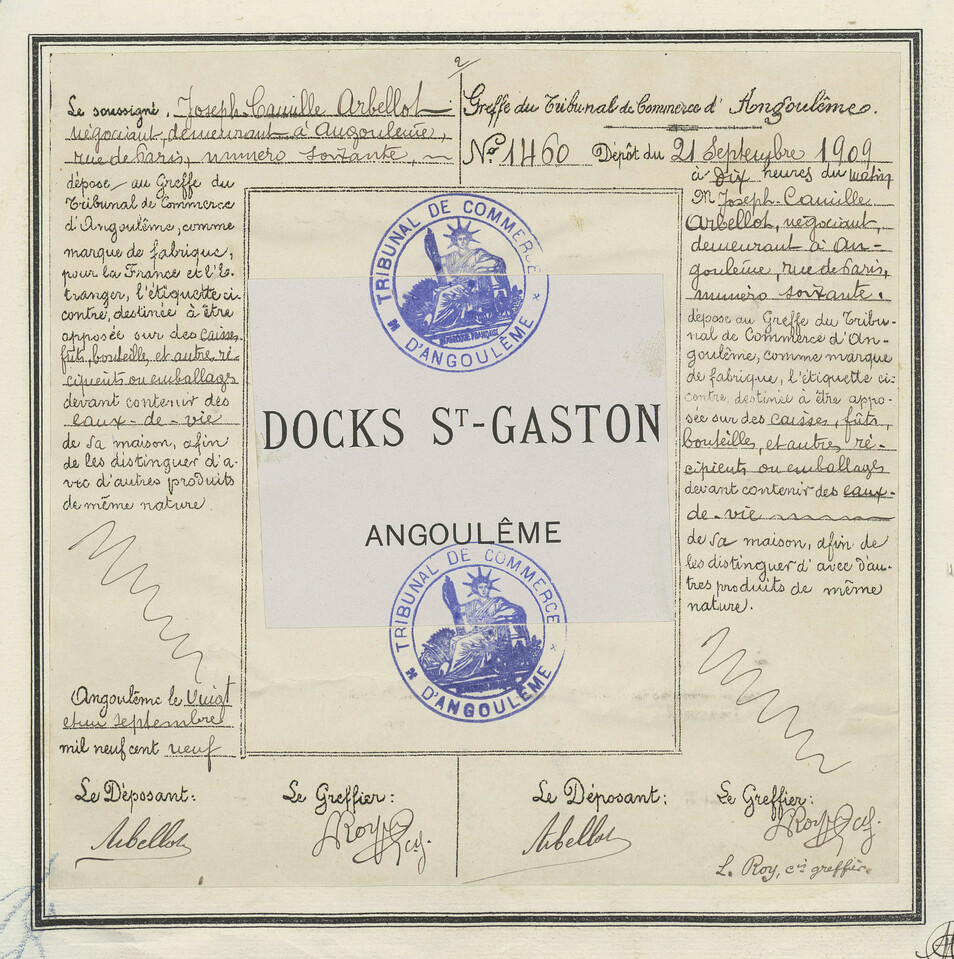 2
Le soussigné, Joseph-Camille Arbellot
négociant, demeurant à Angoulême,
rue de Paris, numéro soixante,
dépose au Greffe du
Tribunal de Commerce
d'Angoulême, comme
marque de fabrique,
pour la France et l'É-
tranger, l'étiquette ci-
contre, destinée à être
apposée sur des caisses,
fûts, bouteilles, et autres ré-
cipients ou emballages
devant contenir des
eaux-de-vie
de sa maison, afin
de les distinguer d'a-
vec d'autres produits
de même nature.
Angoulême le Vingt
et un septembre
mil neuf cent neuf
Greffe du Tribunal de Commerce d'Angoulême.
No. 1460 Dépôt du 21 Septembre 1909
à Dix heures du matin
M Joseph-Camille
Arbellot, négociant,
demeurant à An-
goulême, rue de Paris,
numéro soixante.
dépose au Greffe du Tribu-
nal de Commerce d'An-
goulême, comme marque
de fabrique, l'étiquette ci-
contre, destinée à être appo-
sée sur des caisses, fûts,
bouteilles, et autres ré-
cipients ou emballages
devant contenir des eaux-
de-vie
de sa maison, afin de
les distinguer d'avec d'au-
tres produits de même
nature.
TRIBUNAL DE COMMERCE
RÉPUBLIQUE FRANÇAISE
D'ANGOULÊME
DOCKS ST-GASTON
ANGOULÊME
TRIBUNAL DE COMMERCE
D'ANGOULÊME
Le Déposant: Le Greffier:
Arbellot LRoy
Le Déposant: Le Greffier:
Arbellot LRoy
L. Roy, cis greffier